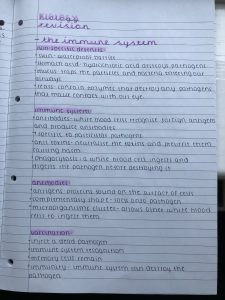 Biology
revision
- the immune system
non specific defences
skin - waterproof barrier
stomach acid - hydrochloric acid destroys pathogens
mucus - traps the particles and bacteria entering our
airways
tears - contain enzymes that destroy any pathogens
that make contact with our eye.
immune system
antibodies - white blood cells recognise foreign antigens
and produce antibodies
specific to particular pathogens
anti toxins - neutralise the toxins and prevents them
causing harm
phagocytosis - a white blood cell ingests and
digests the pathogen before destroying it
antibodies
antigens - proteins found on the surface of cells
complementary shape - locks onto pathogen
microorganisms cluster - allows other white blood
cells to ingest them.
vaccination
inject a dead pathogen
immune system recognition
memory cells remain
immunity - immune system can destroy the
pathogen